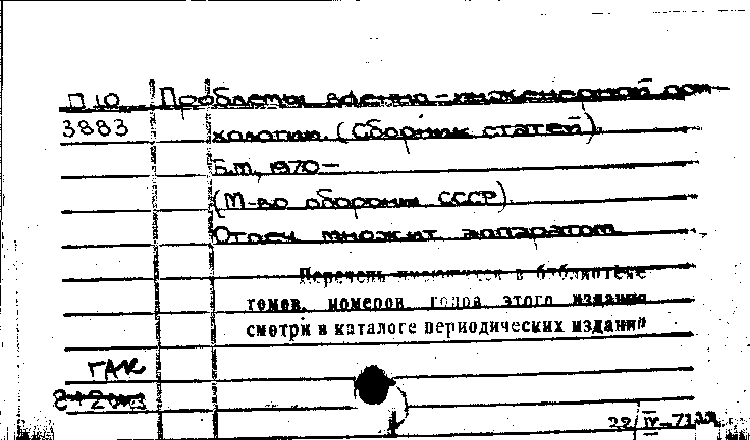 П 10 Проблемы военно-инженерной пси-
3883 хологии. (Сборник статей).
Б.м., 1970-
(М-во обороны СССР).
Отпеч. множит. аппаратом
Перечень имеющихся в библиотеке
томов, номеров годов этого издания
смотри в каталоге периодических изданий
ГАК
22/IV-71